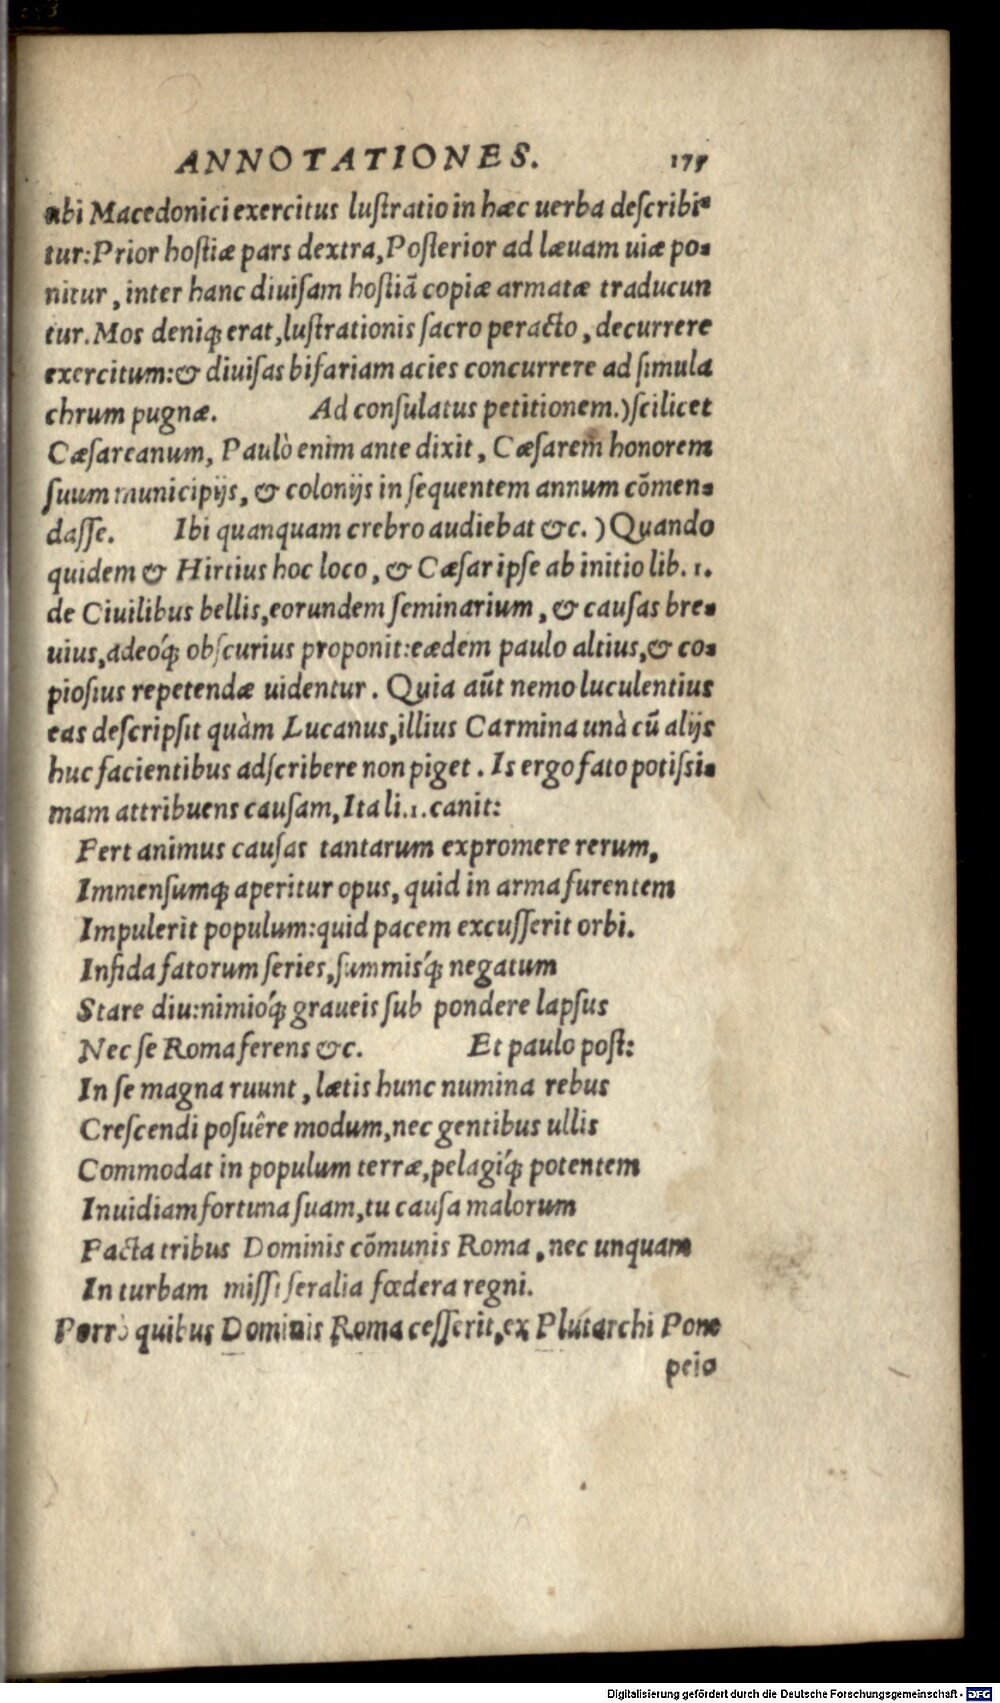 ANNOTATIONES. 175
ubi Macedonici exercitus lustratio in hæc uerba describi-
tur: Prior hostiæ pars dextra, Posterior ad læuam uiæ po-
nitur, inter hanc diuisam hostiã copiæ armatæ traducun
tur. Mos deniq; erat, lustrationis sacro peracto, decurrere
exercitum: & diuisas bifariam acies concurrere ad simula
chrum pugnæ. Ad consulatus petitionem.) scilicet
Cæsareanum, Paulò enim ante dixit, Cæsarem honorem
suum municipijs, & colonijs in sequentem annum cõmen-
dasse. Ibi quanquam crebro audiebat &c.) Quando
quidem & Hirtius hoc loco, & Cæsar ipse ab initio lib. 1.
de Ciuilibus bellis, eorundem seminarium, & causas bre-
uius, adeóq; obscurius proponit: eædem paulo altius, & co-
piosius repetendæ uidentur. Quia aũt nemo luculentius
eas descripsit quàm Lucanus, illius Carmina unà cũ alijs
huc facientibus adscribere non piget. Is ergo fato potissi-
mam attribuens causam, Ita li. 1. canit:
Fert animus causas tantarum expromere rerum,
Immensumq; aperitur opus, quid in arma furentem
Impulerit populum: quid pacem excusserit orbi.
Infida fatorum series, summisq́; negatum
Stare diu: nimioq́; graueis sub pondere lapsus
Nec se Roma ferens &c. Et paulo post:
In se magna ruunt, lætis hunc numina rebus
Crescendi posuêre modum, nec gentibus ullis
Commodat in populum terræ, pelagiq́; potentem
Inuidiam fortuna suam, tu causa malorum
Facta tribus Dominis cõmunis Roma, nec unquam
In turbam missi feralia fœdera regni.
Porrò quibus Dominis Roma cesserit, ex Plutarchi Pom
peio
Digitalisierung gefördert durch die Deutsche Forschungsgemeinschaft - DFG